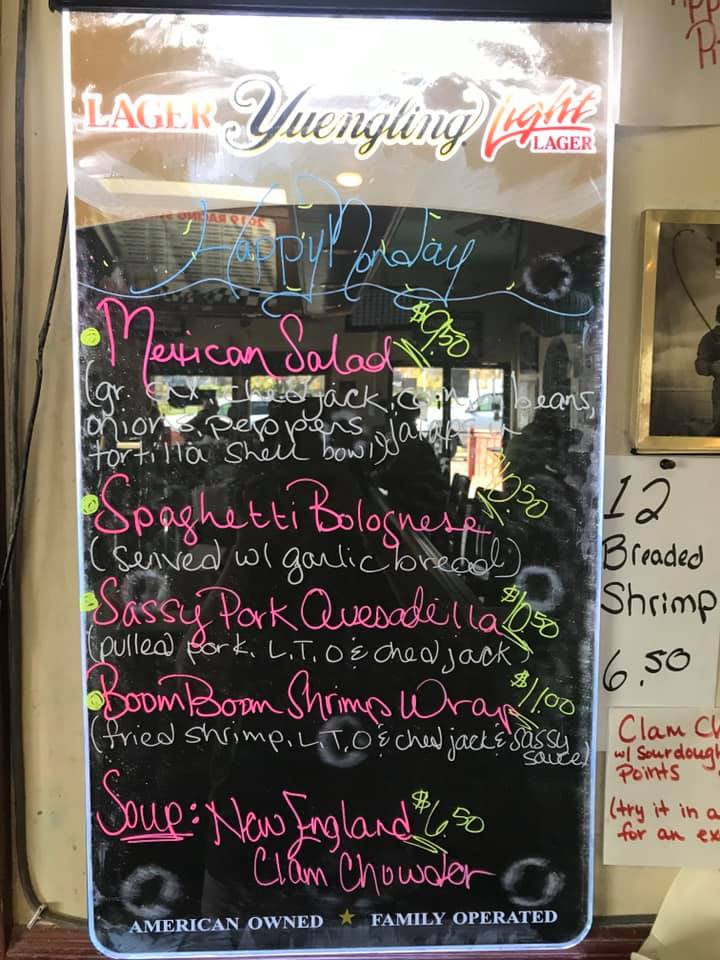 LAGER Yuengling Light LAGER
Happy Monday
Mexican Salad $9.50
(gr. chx, ched jack, corn, beans,
onions, peppers, jalapeno
tortilla shell bowl)
Spaghetti Bolognese $10.50
(served w/ garlic bread)
Sassy Pork Quesadilla $10.50
(pulled pork, L, T, O & ched jack)
Boom Boom Shrimp Wrap $11.00
(fried shrimp, L, T, O & ched jack & Sassy
sauce)
Soup: New England $6.50
Clam Chowder
AMERICAN OWNED ★ FAMILY OPERATED
12
Breaded
Shrimp
6.50
Clam Ch
w/ Sourdough
Points
(try it in a
for an ex